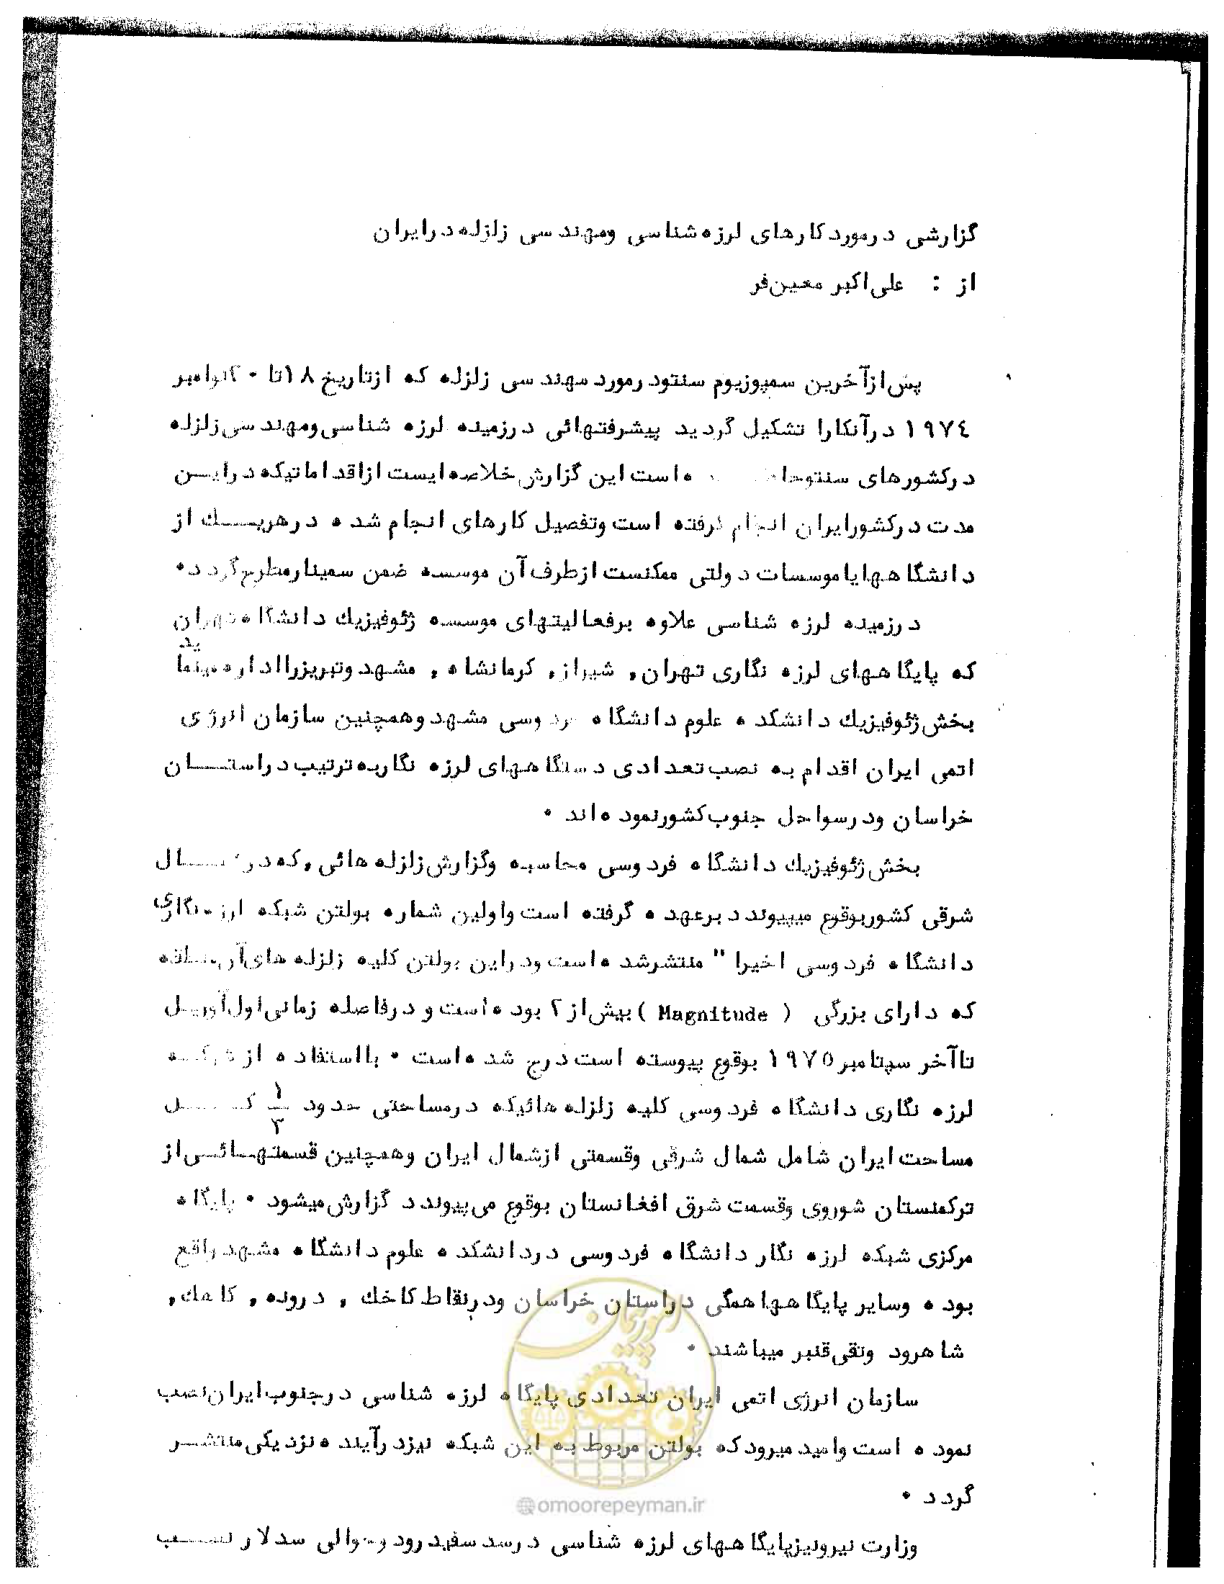 گزارشی درمورد کارهای لرزه شناسی ومهندسی زلزله درایران
از : علی اکبر معین فر
پس ازآخرین سمپوزیوم سنتودرمورد مهندسی زلزله که ازتاریخ ۱۸تا ۲۰نوامبر
۱۹۷٤ درآنکارا تشکیل گردید پیشرفتهائی درزمینه لرزه شناسی ومهندسی زلزله
درکشورهای سنتو ه است این گزارش خلاصه ایست ازاقداماتیکه دراین
مدت درکشورایران انجام گرفته است وتفصیل کارهای انجام شده درهریک از
دانشگاهها یا موسسات دولتی ممکنست ازطرف آن موسسه ضمن سمینارمطرح گردد۰
درزمینه لرزه شناسی علاوه برفعالیتهای موسسه ژئوفیزیک دانشگاه تهران
که پایگاههای لرزه نگاری تهران, شیراز, کرمانشاه , مشهد وتبریزرااداره مینماید
بخش ژئوفیزیک دانشکده علوم دانشگاه فردوسی مشهد وهمچنین سازمان انرژی
اتمی ایران اقدام به نصب تعدادی دستگاههای لرزه نگاربه ترتیب دراستان
خراسان ودرسواحل جنوب کشورنموده اند ۰
بخش ژئوفیزیک دانشگاه فردوسی محاسبه وگزارش زلزله هائی ,که در
شرقی کشوربوقوع میپیوندد برعهده گرفته است واولین شماره بولتن شبکه لرزه نگاری
دانشگاه فردوسی اخیرا " منتشرشده است ودراین بولتن کلیه زلزله های آن منطقه
که دارای بزرگی ( Magnitude ) بیش از ۲ بوده است و درفاصله زمانی اول آوریل
تاآخر سپتامبر ۱۹۷۵ بوقوع پیوسته است درج شده است ۰ بااستفاده از شبکه
لرزه نگاری دانشگاه فردوسی کلیه زلزله هائیکه درمساحتی حدود ۱/۳ کل
مساحت ایران شامل شمال شرقی وقسمتی ازشمال ایران وهمچنین قسمتهائی از
ترکمنستان شوروی وقسمت شرق افغانستان بوقوع می پیوندد گزارش میشود ۰ پایگاه
مرکزی شبکه لرزه نگار دانشگاه فردوسی دردانشکده علوم دانشگاه مشهد واقع
بوده وسایر پایگاهها همگی دراستان خراسان ودرنقاط کاخک , درونه , کاهک,
شاهرود وتقی قنبر میباشند ۰
سازمان انرژی اتمی ایران تعدادی پایگاه لرزه شناسی درجنوب ایران نصب
نموده است وامید میرود که بولتن مربوط به این شبکه نیزدرآینده نزدیکی منتشر
گردد ۰
امور پیمان
omoorepeyman.ir
وزارت نیرونیزپایگاههای لرزه شناسی درسد سفیدرود وحوالی سد لار نصب